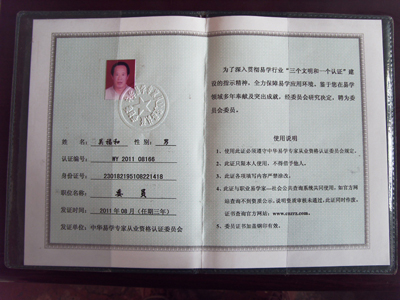 姓名: 吴福和 性别: 男
认证编号: WY 2011 08166
身份证号: 230182195108221418
职位名称: 委 员
发证时间: 2011年08月(任期三年)
发证单位: 中华易学专家从业资格认证委员会
为了深入贯彻易学行业“三个文明和一个认证”建
设的指示精神, 全力保障易学应用环境, 鉴于您在易学
领域多年奉献及突出成就, 经委员会研究决定, 聘为委
员会委员。
使用说明
1、使用此证必须遵守中华易学专家从业资格认证委员会规定。
2、此证只限本人使用, 不得借予他人。
3、此证各项填写内容严禁涂改。
4、此证与职业易学家一社会公共查询系统共同使用, 如官方网
站查询不到资质公示, 说明资质审核未通过, 此证同时作废。
证书查询官方网站:
5、委员证书加盖钢印有效。